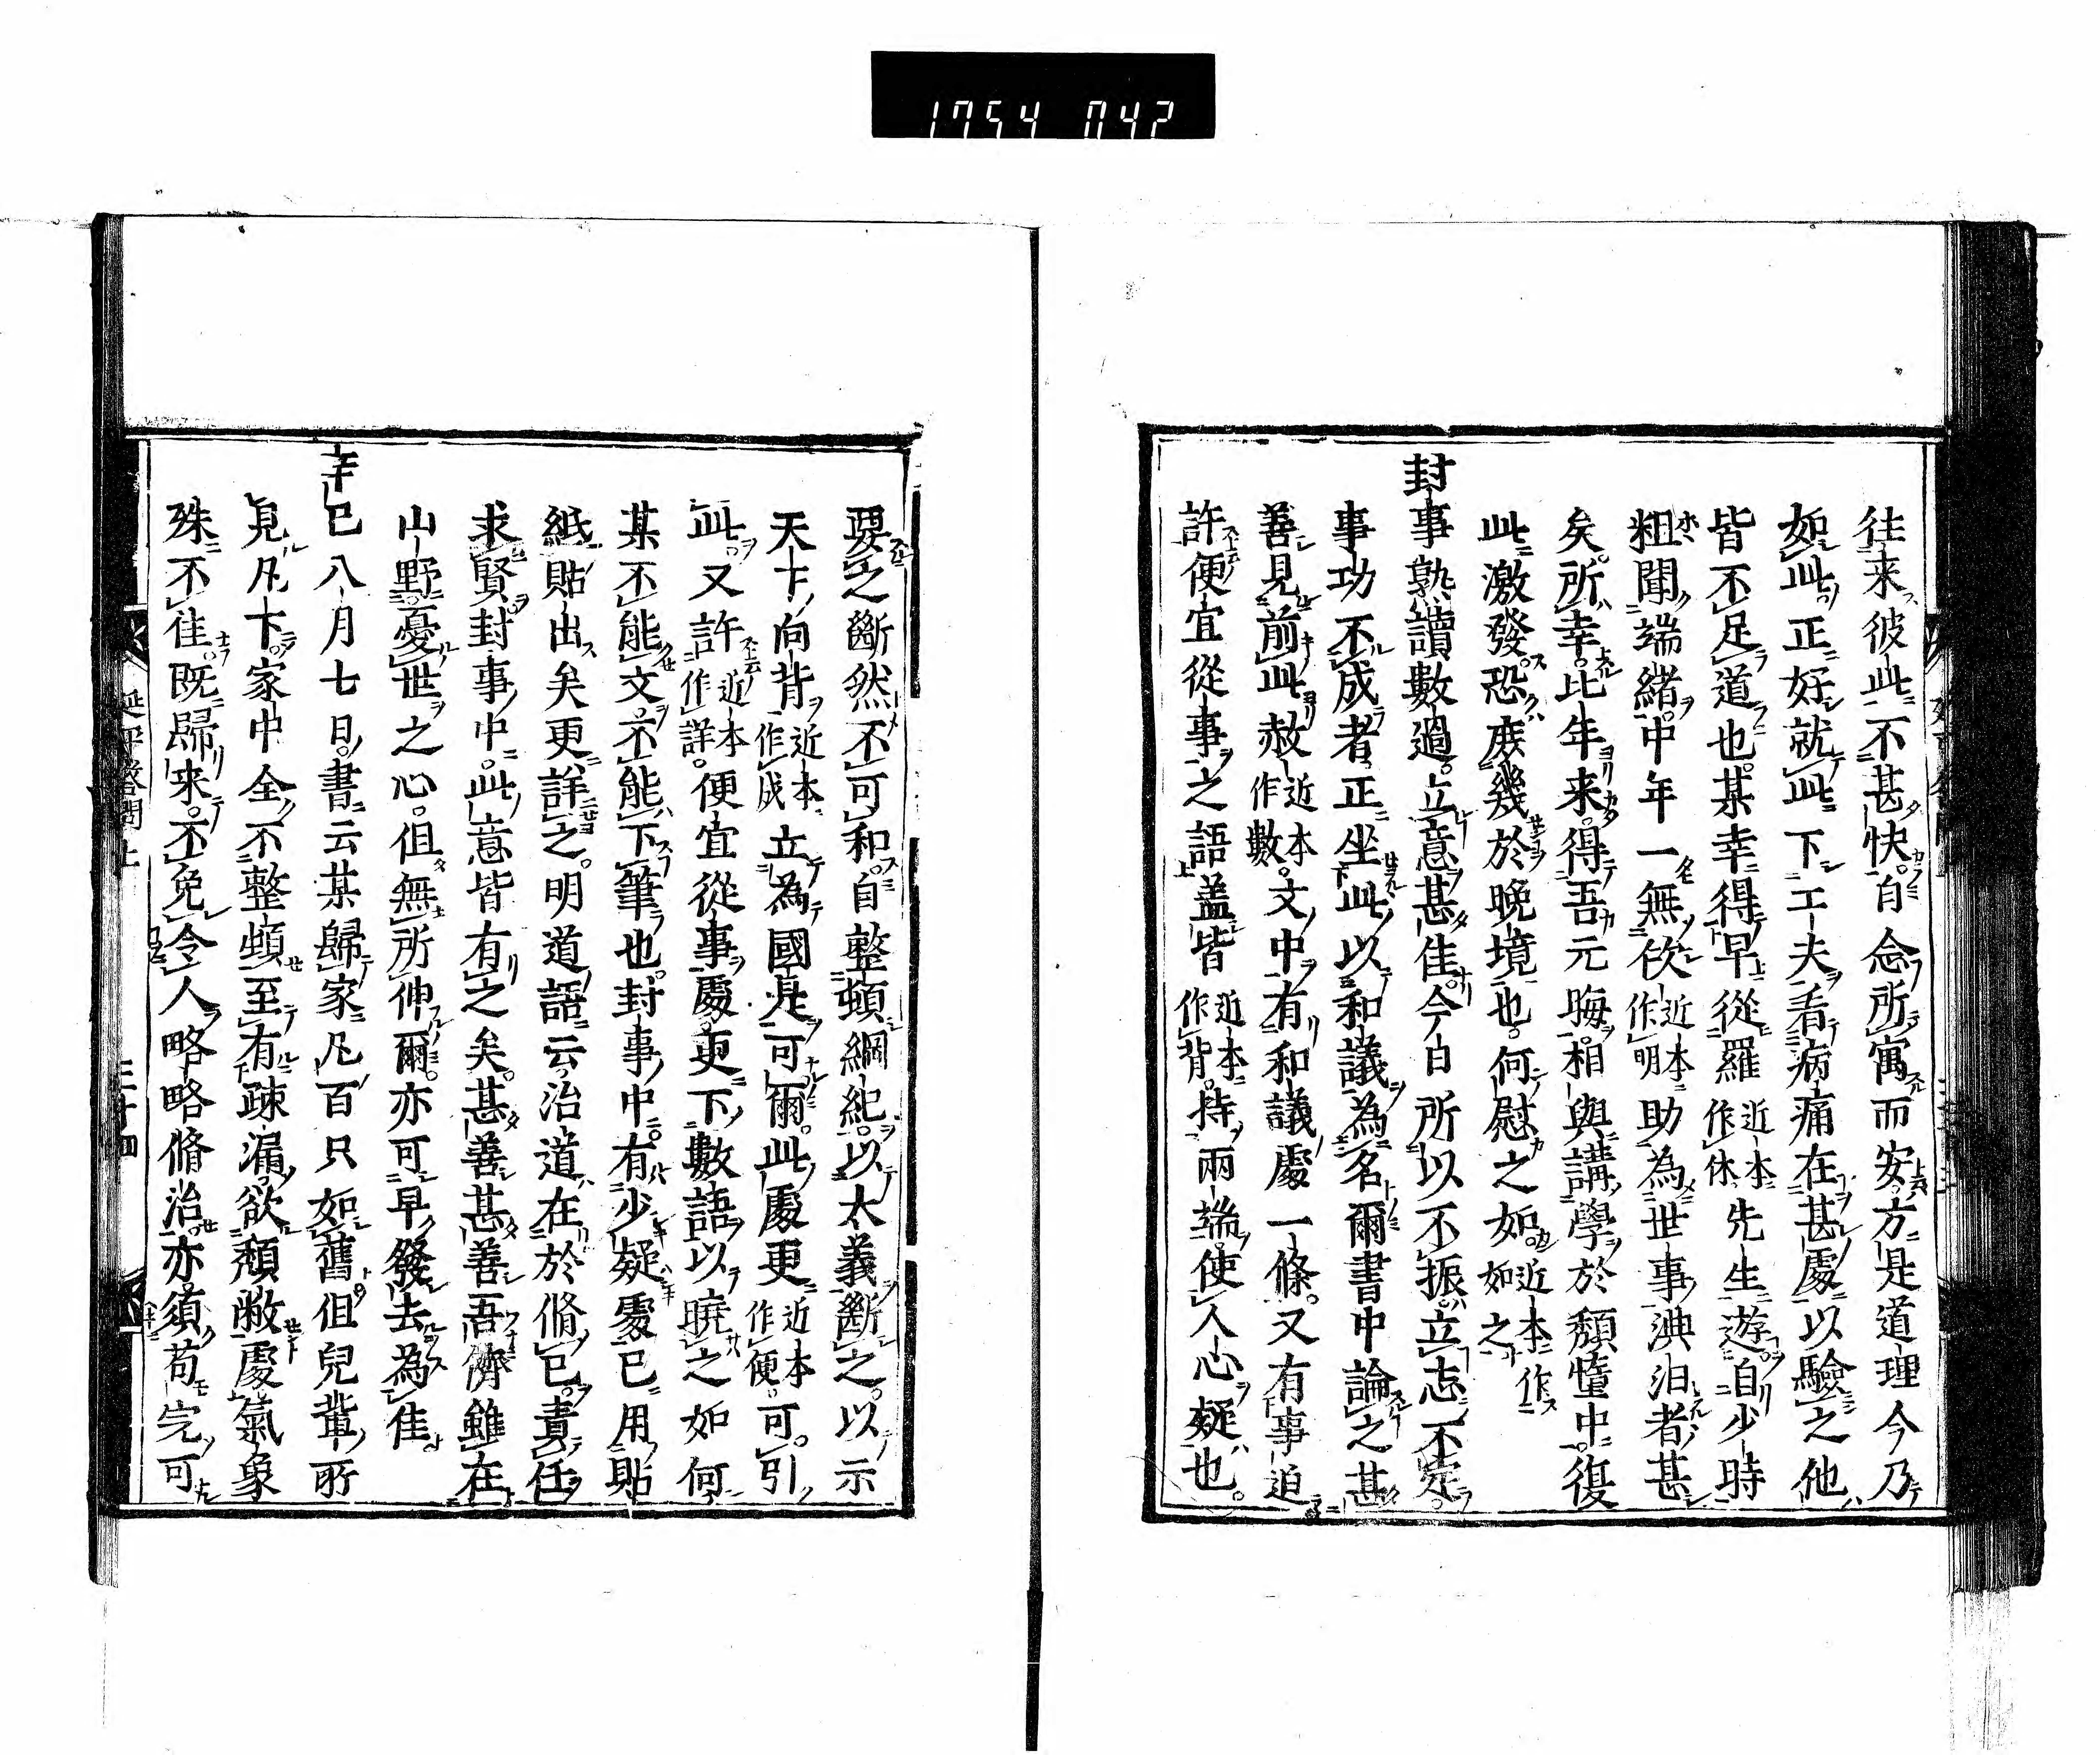 1754 042
往来彼此不甚快自念所寓而安方是道理今乃
如此正好就此下工夫看病痛在甚處以驗之他
皆不足道也某幸得早從羅近本作休先生遊自少時
粗聞端緒中年一無佽近本作明助為世事淟汩者甚
矣所幸比年来得吾元晦相與講學於頹墮中復
此激發恐庶幾於晚境也何慰之如近本作如之
封事熟讀數過立意甚佳今日所以不振立志不定
事功不成者正坐此以和議為名爾書中論之甚
善見前此赦近本作數文中有和議處一條又有事迫
許便宜從事之語盖皆近本作背持兩端使人心疑也
要之斷然不可和自整頓綱紀以大義斷之以示
天下向背近本作成立為國是可爾此處更近本作便可引
此又許近本作詳便宜從事處更下數語以曉之如何
某不能文不能下筆也封事中有少疑處已用貼
紙貼出矣更詳之明道語云治道在於脩已責任
求賢封事中此意皆有之矣甚善甚善吾儕雖在
山野憂世之心但無所伸爾亦可早發去為佳
辛巳八月七日書云某歸家凡百只如舊但兒輩所
見凡下家中全不整頓至有疎漏欲頹敝處氣象
殊不佳既歸来不免令人略略脩治亦須苟完可
延平答問上
三十四